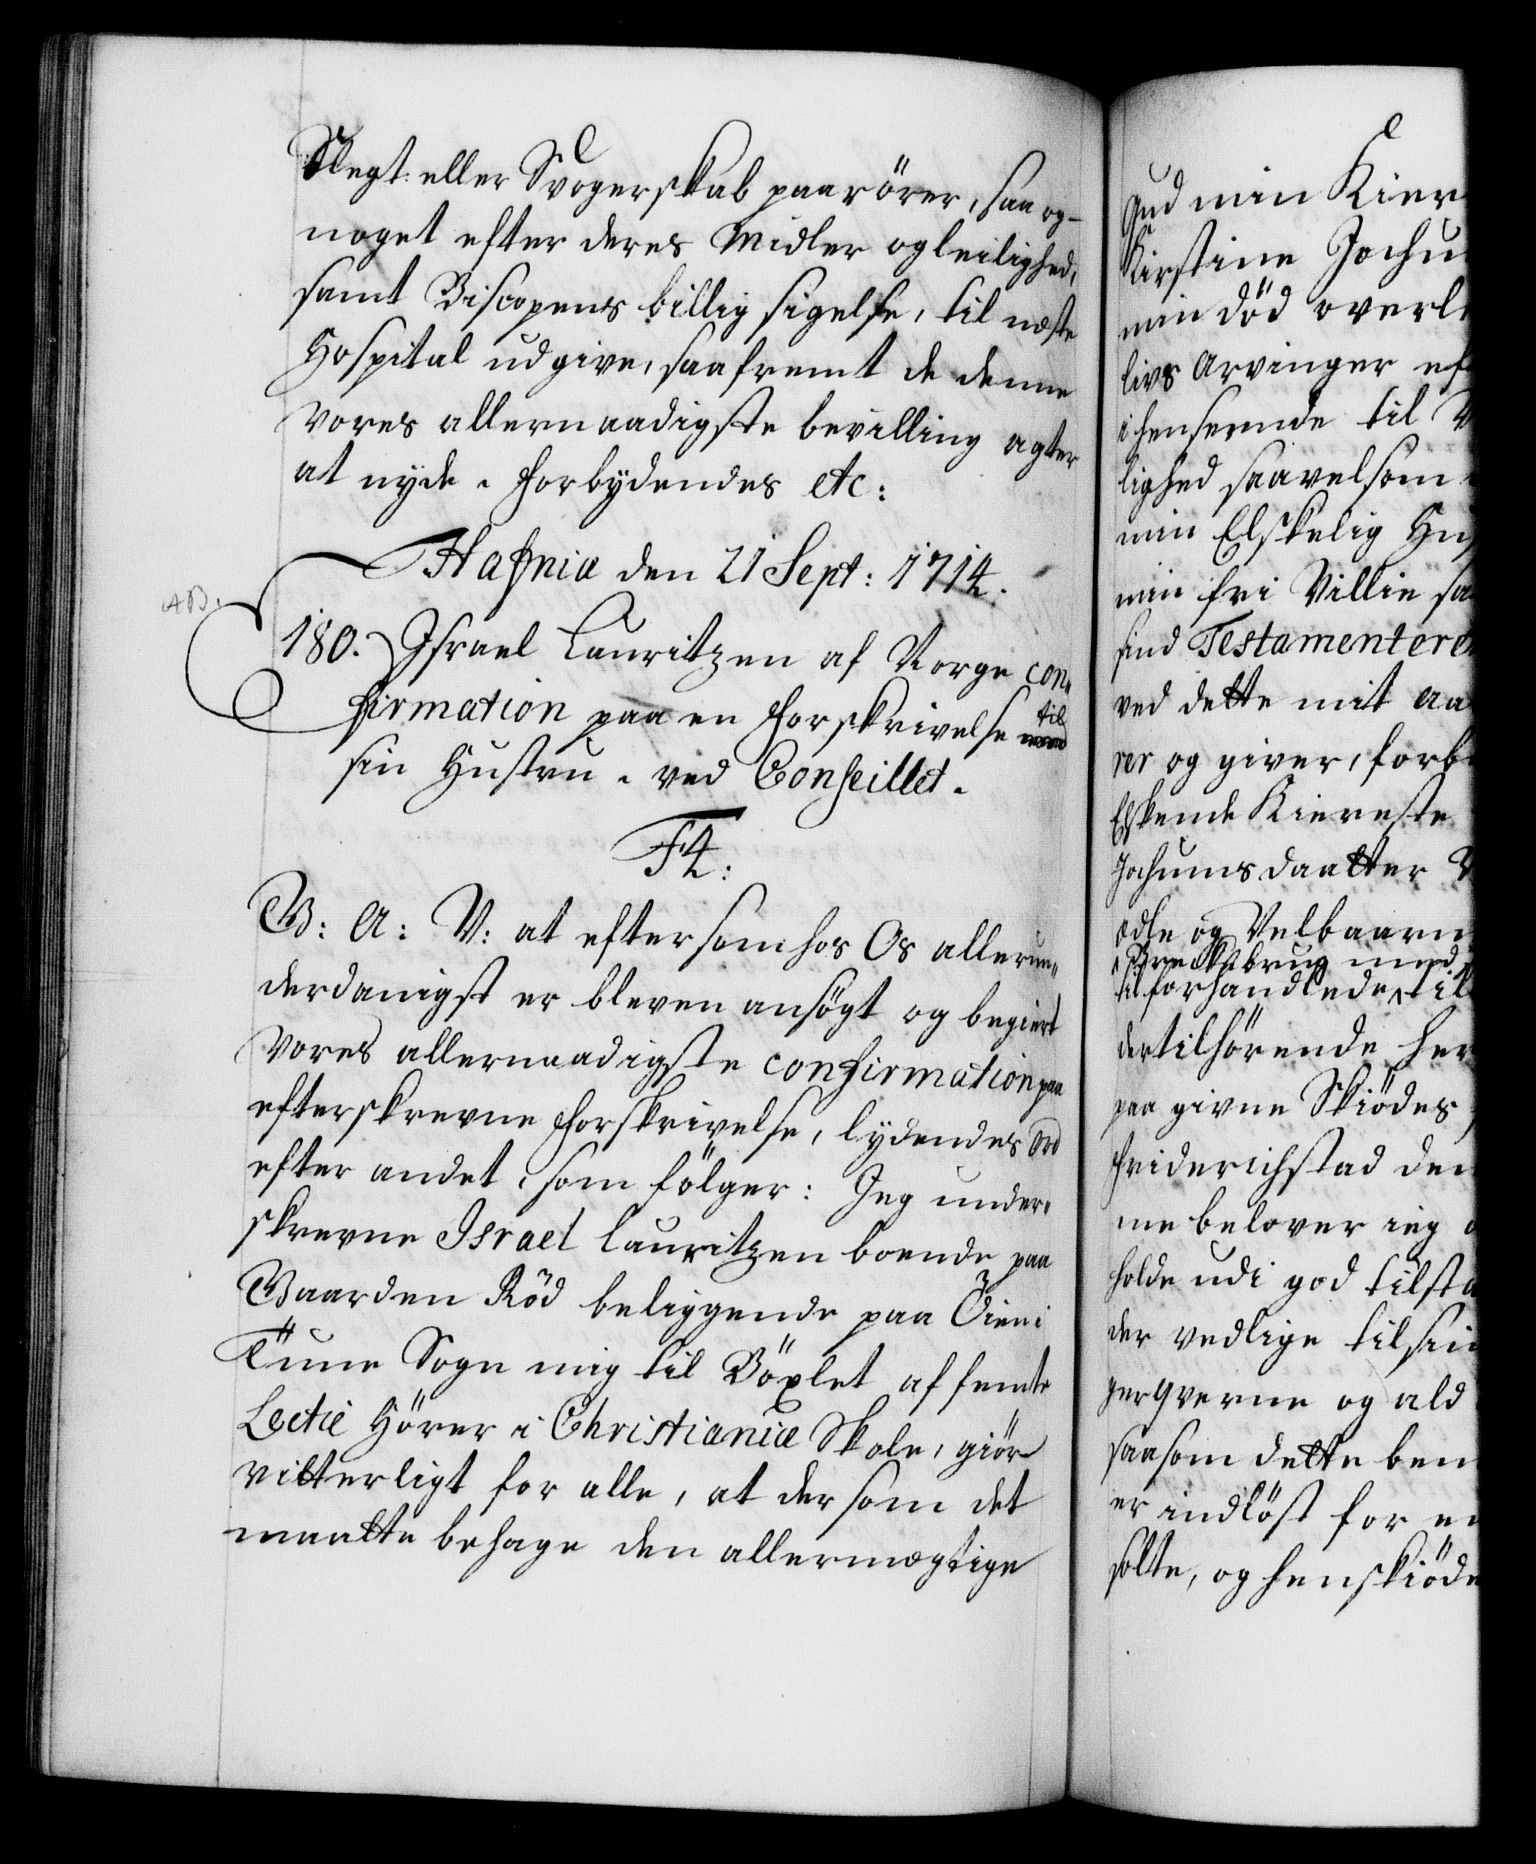 Slegt eller Svogerskab paarörer, saa og
noget efter deres Midler og leilighed,
samt Biscopens billig sigelse, til næste
Hospital udgive, saafremt de denne
vores allernaadigste bevilling agter
at nyde. Forbydendes etc:
Hafniæ den 21 Sept: 1714.
AB.
180. Israel Lauritzen af Norge con-
firmation paa en forskrivelse til
sin Hustru. ved Conseillet.
F4:
G: A: V: at eftersom hos Os allerun-
derdanigst er bleven ansögt og begiert
vores allernaadigste confirmation paa
efterskrevne forskrivelse, lydendes ord
efter andet, som fölger: Jeg under-
skrevne Israel Lauritzen boende paa
Gaarden Röd beliggende paa Öien i
Tune Sogn mig til Böxlet af femte
Lectie Hörer i Christianiæ Skole, giör
vitterligt for alle, at dersom det
maatte behage den allermægtige
Gud min Kier
Kirstine Jochu
min död overle
livs Arvinger ef
i henseende til V
lighed saavelsom
min Elskelig Hus
min fri Villie sa
sind Testamentere
ved dette mit aa
rer og giver, forb
Elskende Kiereste
Jochums daatter V
ædle og Velbaarn
brug med
forhandlede til
dertilhörende her
paa givne Skiödes
Friderichstad den
me belover ieg
holde udi god tilsta
der vedlige til sin
ger qverne og ald
saasom dette ben
er indlöst for en
solte, og henskiöde